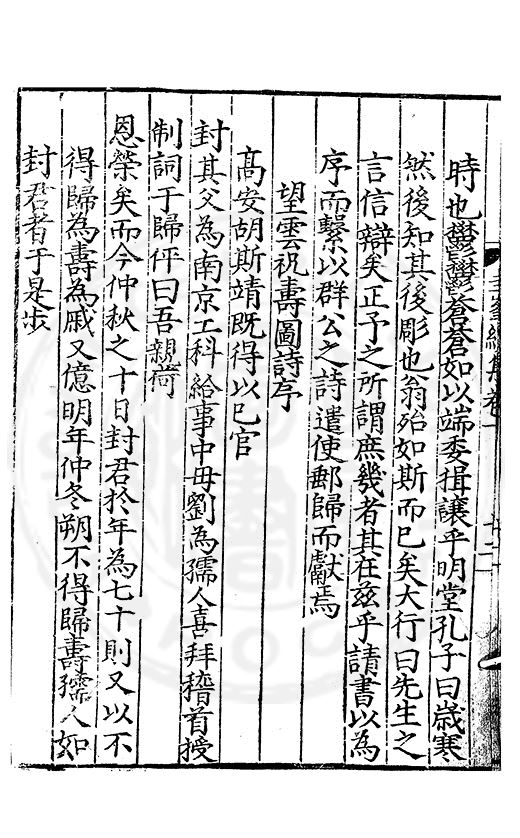 時也鬱鬱蒼蒼如以端委揖讓乎明堂孔子曰歲寒
然後知其後彫也翁殆如斯而已矣大行曰先生之
言信辯矣正予之所謂庶幾者其在茲乎請書以為
序而繫以群公之詩遣使郵歸而獻焉
望雲祝壽圖詩序
高安胡斯靖既得以已官
封其父為南京工科給事中母劉為孺人喜拜稽首授
制詞于歸伻曰吾親荷
恩榮矣而今仲秋之十日封君於年為七十則又以不
得歸為壽為戚又億明年仲冬朔不得歸壽孺人如
封君者于是步